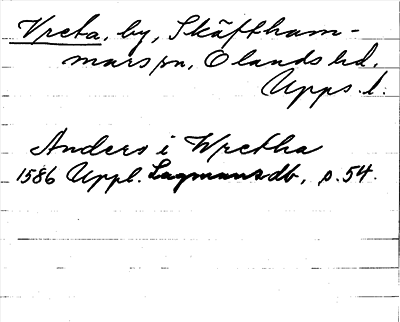 Vreta, by, Skäftham-
mars sn, Olands hd,
Upps. l.
Anders i Wretha
1586 Uppl. Lagmansdb, s. 54.